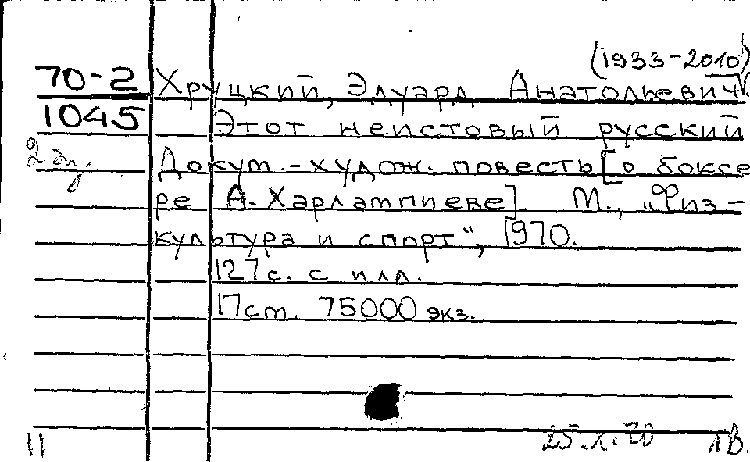 (1933-2010)
70-2 Хруцкий, Эдуард Анатольевич
1045 Этот неистовый русский
2 эк. Докум.-худож. повесть [о боксе-
ре А. Харлампиеве]. М., „Физ-
культура и спорт", 1970.
127 с. с илл.
17 см. 75000 экз.
11